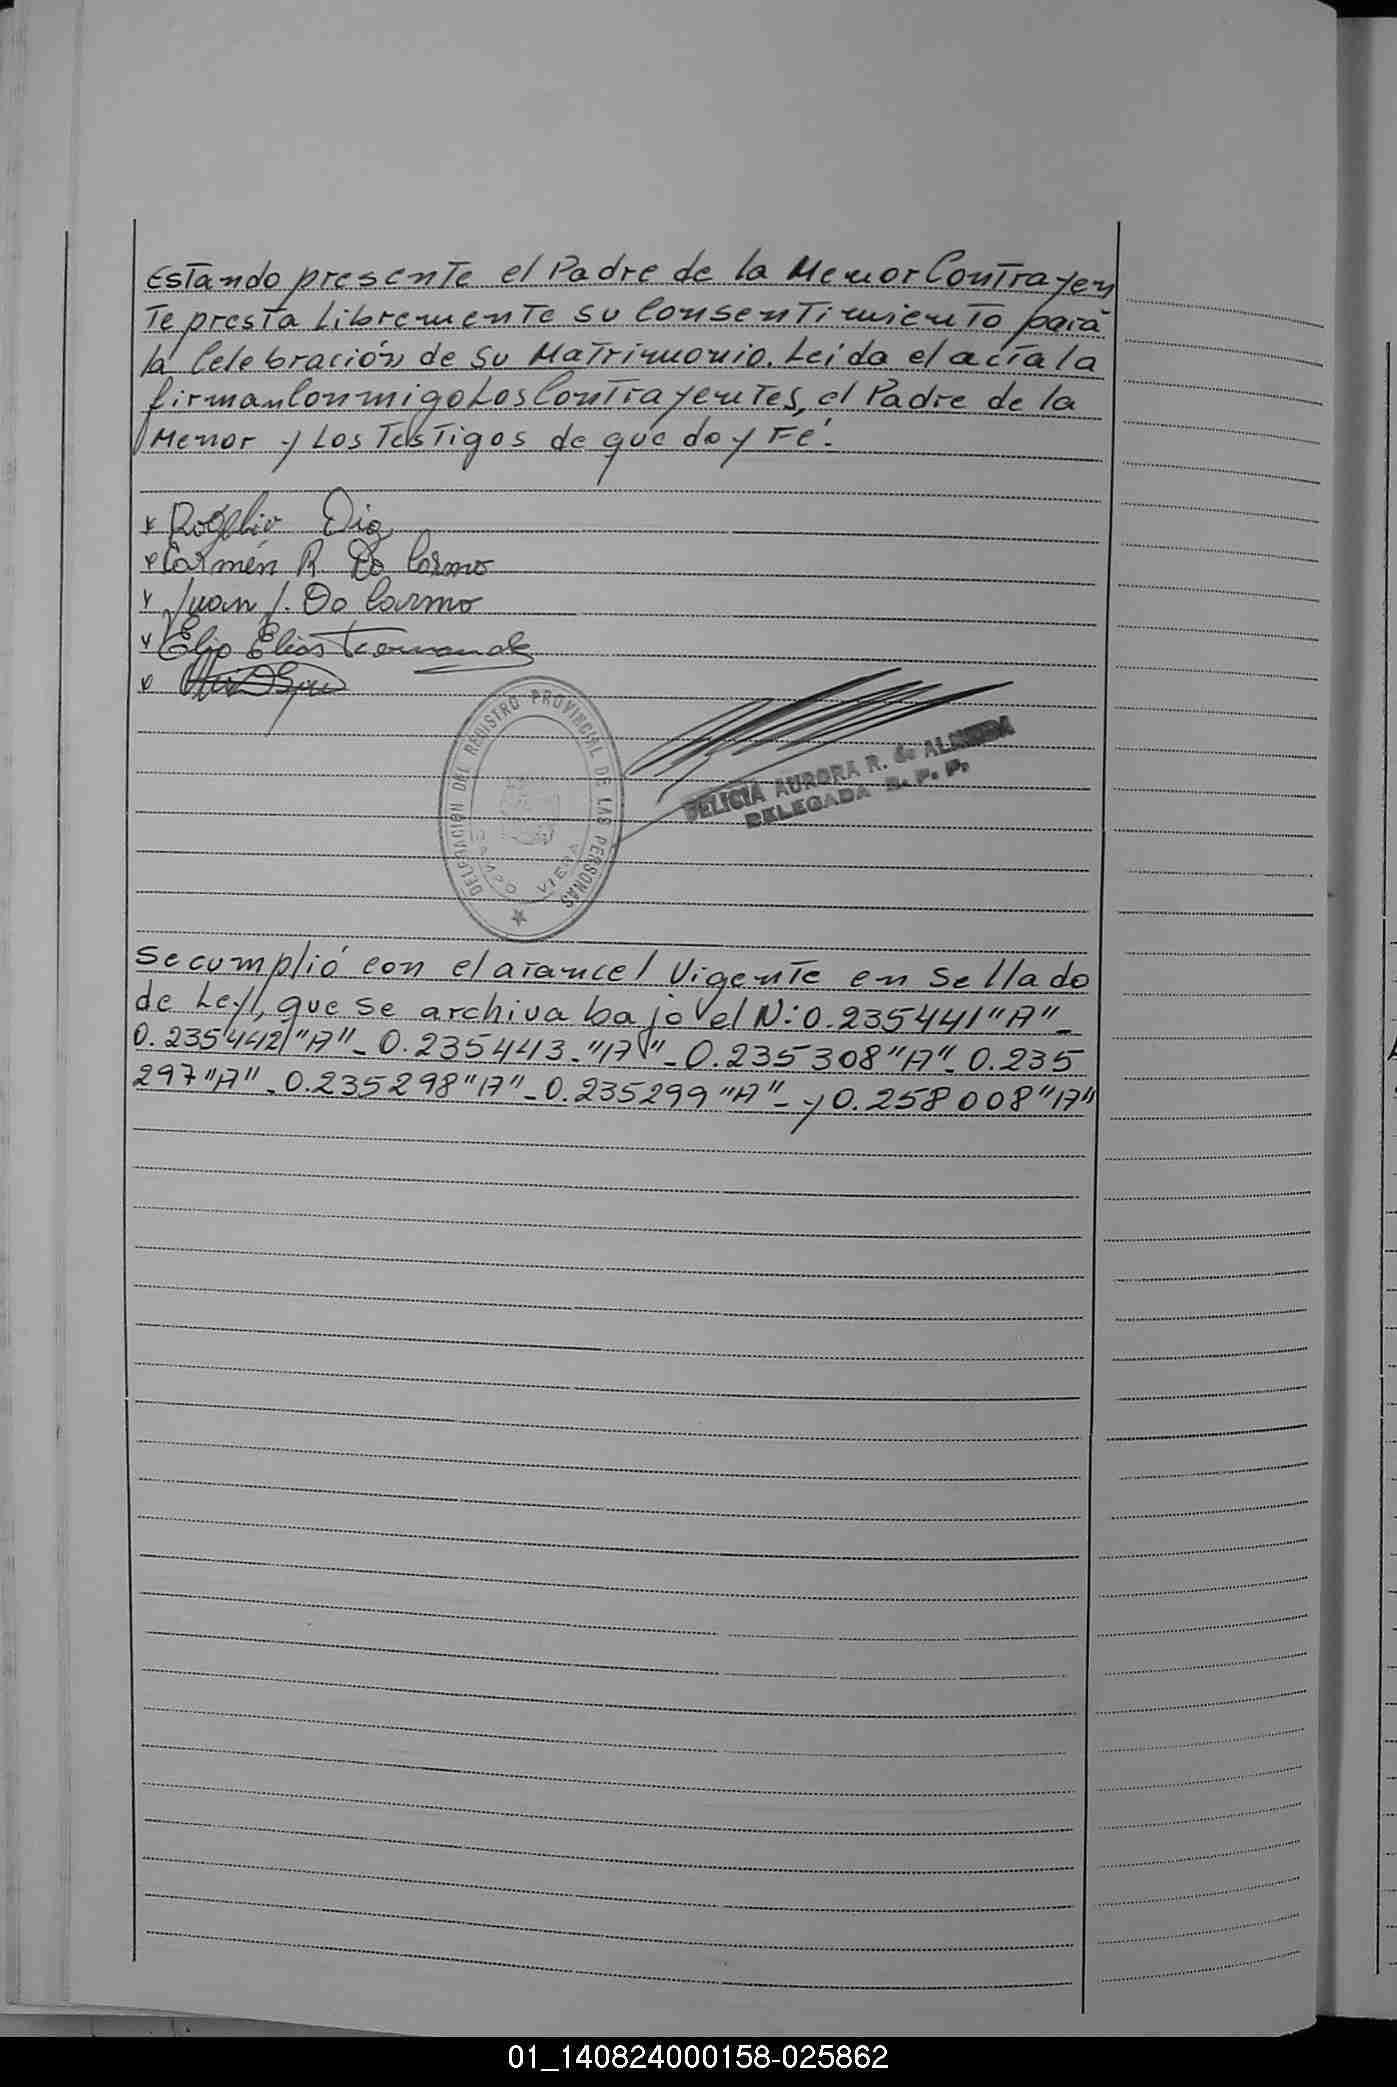 Estando presente el Padre de la Menor Contrayen
te presta Libremente su Consentimiento para
la Celebración de su Matrimonio. Leida el acta la
firman Conmigo Los Contrayentes, el Padre de la
Menor y Los Testigos de que doy Fé.
x Rogelio Dia
x Carmén R. Do Carmo
x Juan J. Do Carmo
x Elio Elias Fernandez
x
DELEGACION DEL REGISTRO PROVINCIAL DE LAS PERSONAS
CAMPO VIERA
FELICIA AURORA R. de ALMEIDA
DELEGADA R. P. P.
Se cumplió con el arancel Vigente en Sellado
de Ley, que se archiva bajo el N: 0.235441 "A" -
0.235442 "A" - 0.235443 - "A" - 0.235308 "A" - 0.235
297 "A" - 0.235298 "A" - 0.235299 "A" - y 0.258008 "A"
01_140824000158-025862